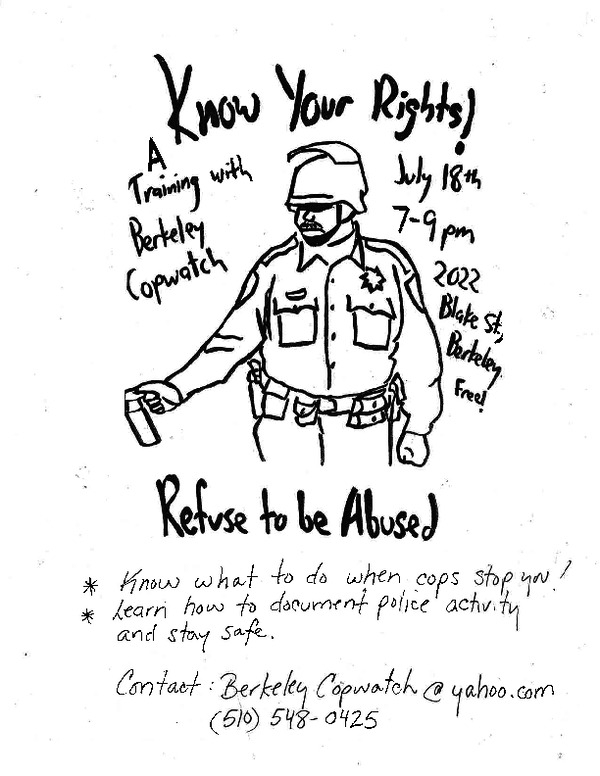 Know Your Rights!
A
Training with
Berkeley
Copwatch
July 18th
7-9 pm
2022
Blake St.,
Berkeley
Free!
Refuse to be Abused
* Know what to do when cops stop you!
* Learn how to document police activity
and stay safe.
Contact: Berkeley Copwatch@yahoo.com
(510) 548-0425